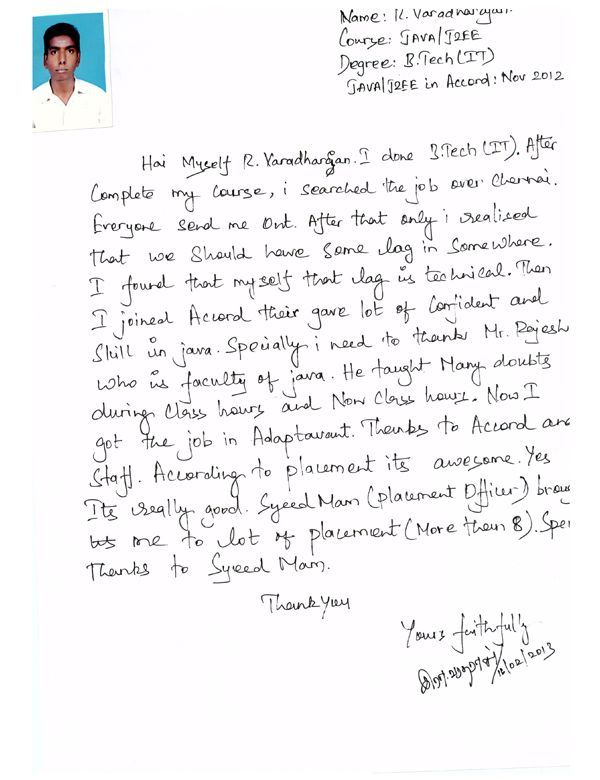 Name: R. Varadharajan.
Course: JAVA/J2EE
Degree: B.Tech (IT)
JAVA/J2EE in Accord: Nov 2012
Hai Myself R. Varadharajan. I done B.Tech (IT). After
Complete my Course, i searched the job over Chennai.
Everyone send me Out. After that only i realised
that we should have some lag in Somewhere.
I found that myself that lag is technical. Then
I joined Accord their gave lot of Confident and
Skill in java. Specially i need to thanks Mr. Rajesh
who is faculty of java. He taught Many doubts
during Class hours and Non Class hours. Now I
got the job in Adaptavant. Thanks to Accord and
Staff. According to placement its awesome. Yes
Its really good. Syeed Mam (placement Officer) brou
me to lot of placement (More than 8). Spe
Thanks to Syeed Mam.
Thank You
Yours faithfully
/02/2013